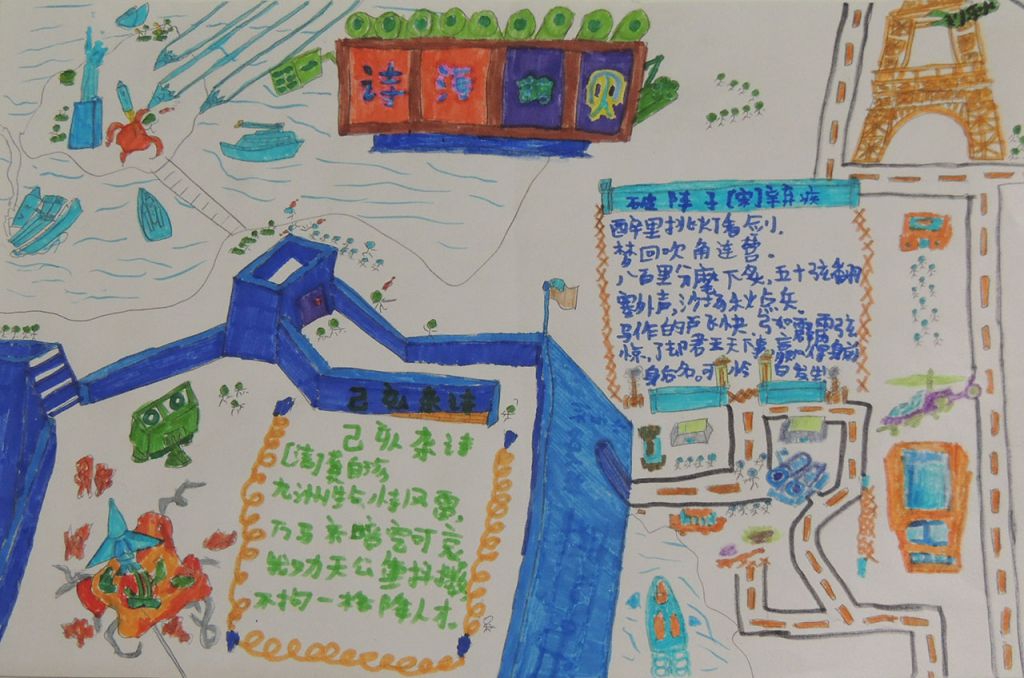 诗海
破阵子[宋]辛弃疾
醉里挑灯看剑,
梦回吹角连营。
八百里分麾下炙,五十弦翻
塞外声,沙场秋点兵。
马作的卢飞快,弓如霹雳弦
惊,了却君王天下事,赢得身前
身后名。可怜白发生
己亥杂诗
己亥杂诗
[清]龚自珍
九洲生气恃风雷,
万马齐喑究可哀
我劝天公重抖擞
不拘一格降人才.